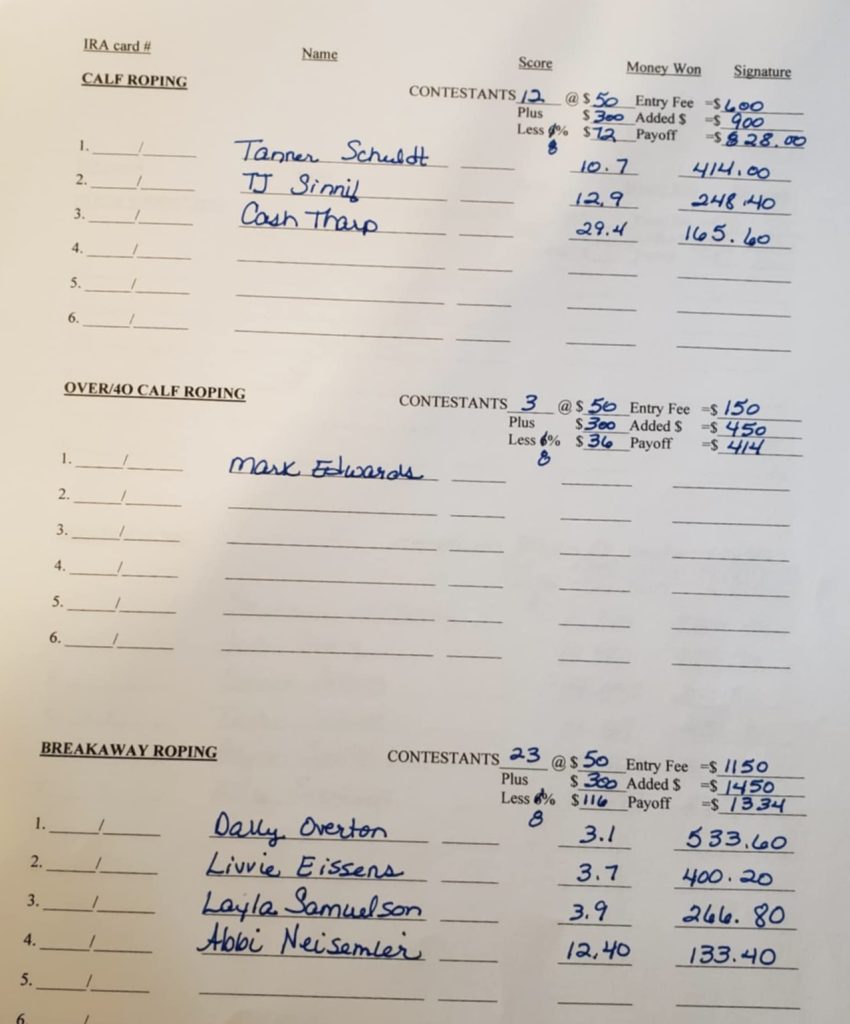 IRA card # Name Score Money Won Signature
CALF ROPING CONTESTANTS 12 @ $ 50 Entry Fee =$ 600
Plus $ 300 Added $ =$ 900
Less % $ 72 Payoff =$ 828.00
8
1. / Tanner Schuldt 10.7 414.00
2. / TJ 12.9 248.40
3. / Cash Tharp 29.4 165.60
4. /
5. /
6. /
OVER/40 CALF ROPING CONTESTANTS 3 @ $ 50 Entry Fee =$ 150
Plus $ 300 Added $ =$ 450
Less 6% $ 36 Payoff =$ 414
8
1. / Mark Edwards
2. /
3. /
4. /
5. /
6. /
BREAKAWAY ROPING CONTESTANTS 23 @ $ 50 Entry Fee =$ 1150
Plus $ 300 Added $ =$ 1450
Less 6% $ 116 Payoff =$ 1334
8
1. / Dally Overton 3.1 533.60
2. / Livvie Eissens 3.7 400.20
3. / Layla Samuelson 3.9 266.80
4. / Abbi Neisemier 12.40 133.40
5. /
6. /